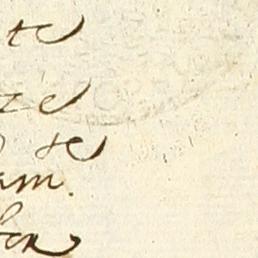 te
te
se
am.
ber